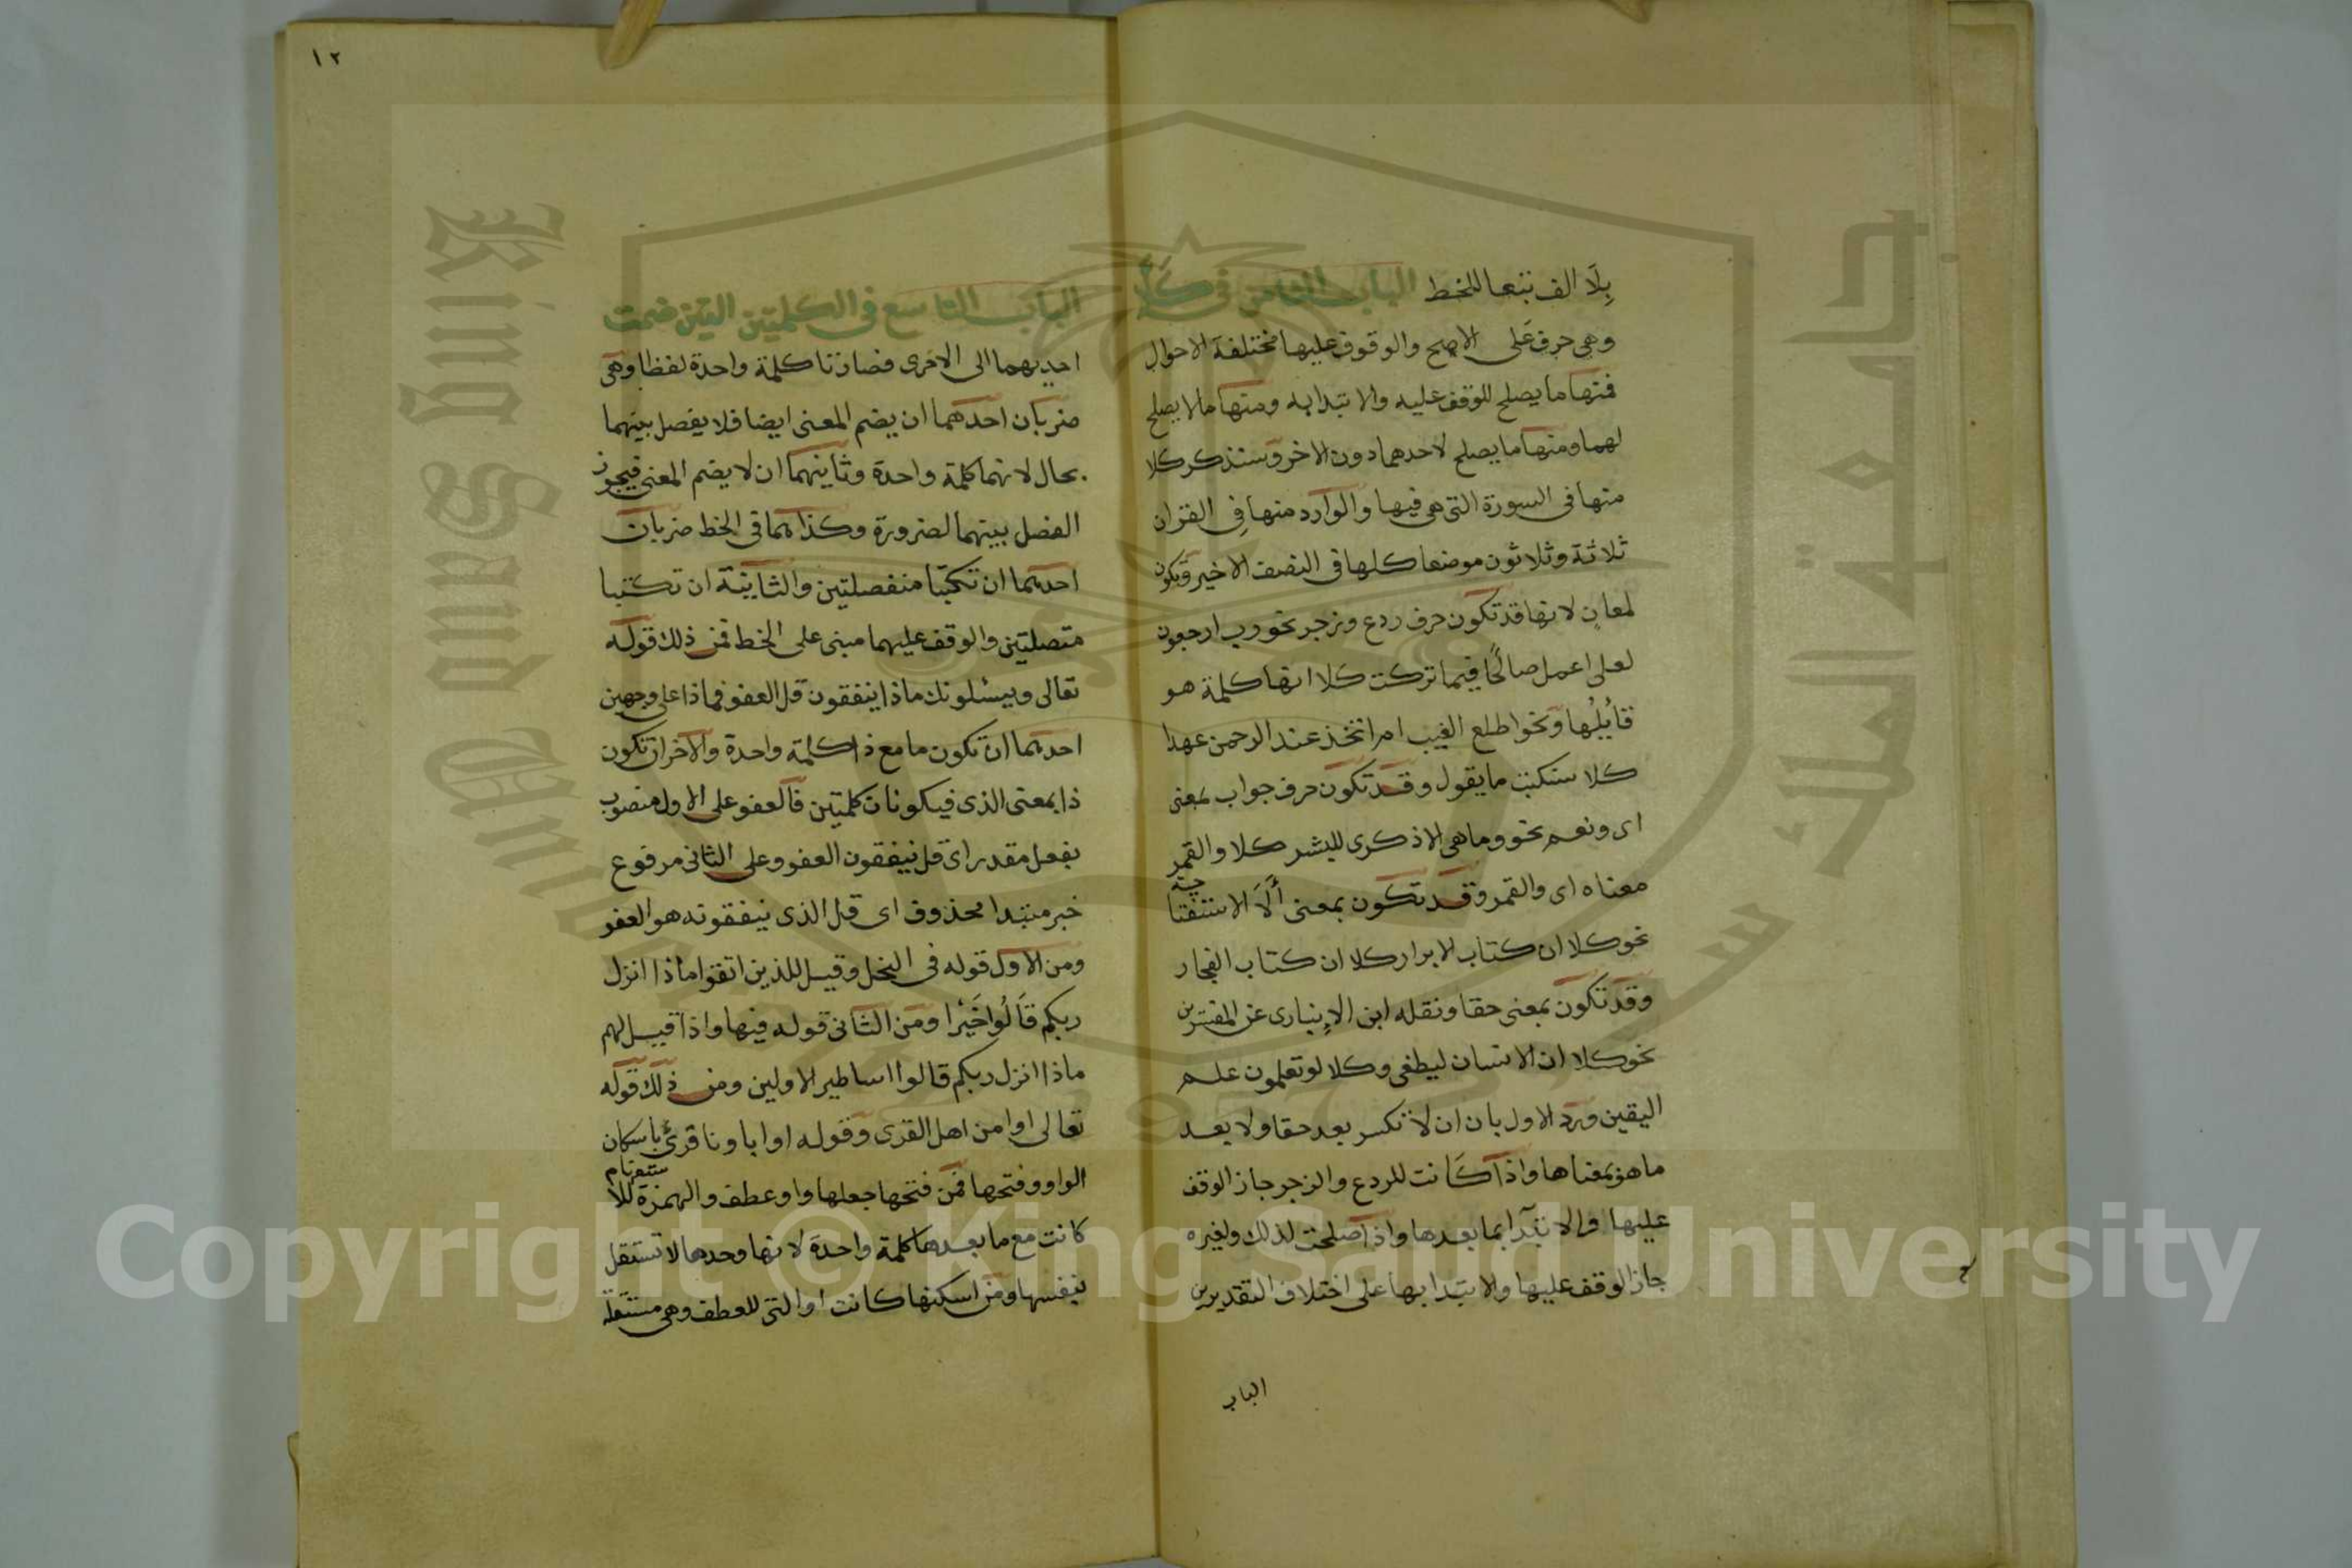 بِلَا الف تبعا للخط الباب الثامن فى كلَّا
وهى حرف على الاصح والوقوف عليها مختلفة الاحوال
فمنها ما يصلح للوقف عليه والابتدا به ومنها ما لا يصلح
لهما ومنها ما يصلح لاحدهما دون الاخر وستذكر كلا
منها فى السورة التى هى فيها والوارد منها فِى القران
ثلاثة وثلاثون موضعا كلها فى النصف الاخير وتكون
لمعانٍ لانها قد تكون حرف ردع وزجر نحو رب ارجعون
لعلى اعمل صالحًا فيما تركت كلا انها كلمة هو
قائِلُها ونحو اطلع الغيب ام اتخذ عند الرحمن عهدا
كلا سنكتب ما يقول وقد تكون حرف جواب بمعنى
اى ونعم نحو وما هى الا ذكرى للبشر كلا والقمر
معناه اى والقمر وقد تكون بمعنى أَلَا الاستفتاحية
نحو كلا ان كتاب الابرار كلا ان كتاب الفجار
وقد تكون بمعنى حقا ونقله ابن الانبارى عن المفسرين
نحو كلا ان الانسان ليطغى وكلا لو تعلمون علم
اليقين ورد الاول بان ان لا تكسر بعد حقا ولا بعد
ما هو بمعناها واذا كانت للردع والزجر جاز الوقف
عليها والابتدآ بما بعدها واذا صلحت لذلك ولغيره
جاز الوقف عليها والابتدا بها على اختلاف التقديرين
الباب
١٢
الباب التاسع فى الكلمتين التين ضمت
احديهما الى الاخرى فصارتا كلمة واحدة لفظا وهى
ضربان احدهما ان يضم المعنى ايضا فلا يفصل بينهما
بحال لانهما كلمة واحدة وثانيهما ان لا يضم المعنى فيجوز
الفصل بينهما لضرورة وكذا هما فى الخط ضربان
احدهما ان تكتبا منفصلتين والثانية ان تكتبا
متصلتين والوقف عليهما مبنى على الخط فمن ذلك قوله
تعالى ويسئلونك ماذا ينفقون قل العفو فماذا على وجهين
احدهما ان تكون ما مع ذا كلمة واحدة والاخر ان تكون
ذا بمعنى الذى فيكونان كلمتين فالعفو على الاول منصوب
بفعل مقدر اى قل ينفقون العفو وعلى الثانى مرفوع
خبر مبتدا محذوف اى قل الذى ينفقونه هو العفو
ومن الاول قوله فى النحل وقيل للذين اتقوا ماذا انزل
ربكم قَالُوا خَيْرا ومن الثانى قوله فيها واذا قيل لهم
ماذا انزل ربكم قالوا اساطير الاولين ومن ذلك قوله
تعالى اوا من اهل القرى وقوله اوا باونا قرئ باسكان
الواو وفتحها فمن فتحها جعلها واو عطف والهمزة للاستفهام
كانت مع ما بعدها كلمة واحدة لانها وحدها لا تستقل
بنفسها ومن اسكنها كانت او التى للعطف وهى مستقلة